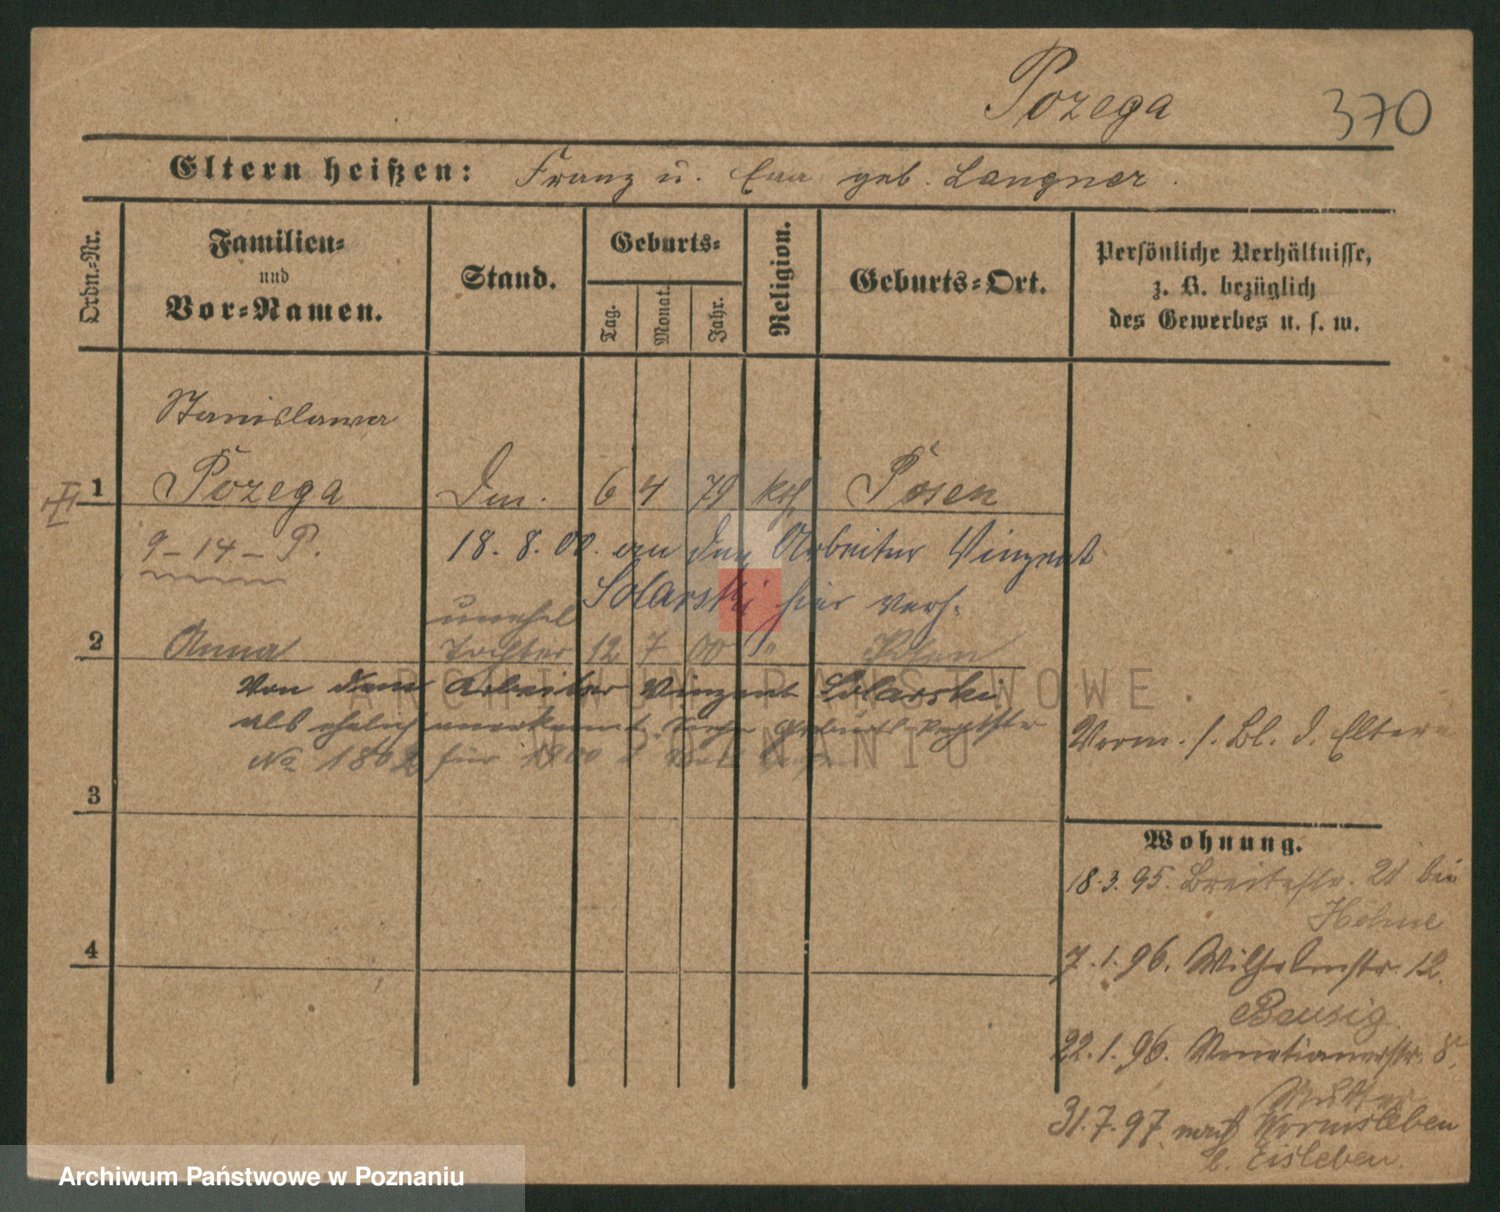 Pozega 370
Eltern heißen: Franz u. Eva geb. Langner.
Ordn.-Nr.
Familien-
und
Vor-Namen.
Stand.
Geburts-
Tag.
Monat.
Jahr.
Religion.
Geburts-Ort.
Persönliche Verhältnisse,
z. B. bezüglich
des Gewerbes u. s. w.
Stanislawa
1 Pozega 6 4 79 kth Posen
9-14-P.
18. 8. 00. an den Arbeiter Vinzent
Solarski hier verh.
unehel
2 Anna Tochter 12 7 00 " Posen
Von dem Arbeiter Vinzent Solarski
als ehelich anerkannt. Geburts Register
No 1862 für 1900
Verm. s. Bl. d. Eltern
3
4
Wohnung.
18.3.95. Breitestr. 21 bei
Höhne
7.1.96. Wilhelmstr. 12.
22.1.96. Venetianerstr. 8
Mutter
31.7.97 nach Wormsleben
b. Eisleben.
ARCHIWUM PAŃSTWOWE
W POZNANIU
Archiwum Państwowe w Poznaniu